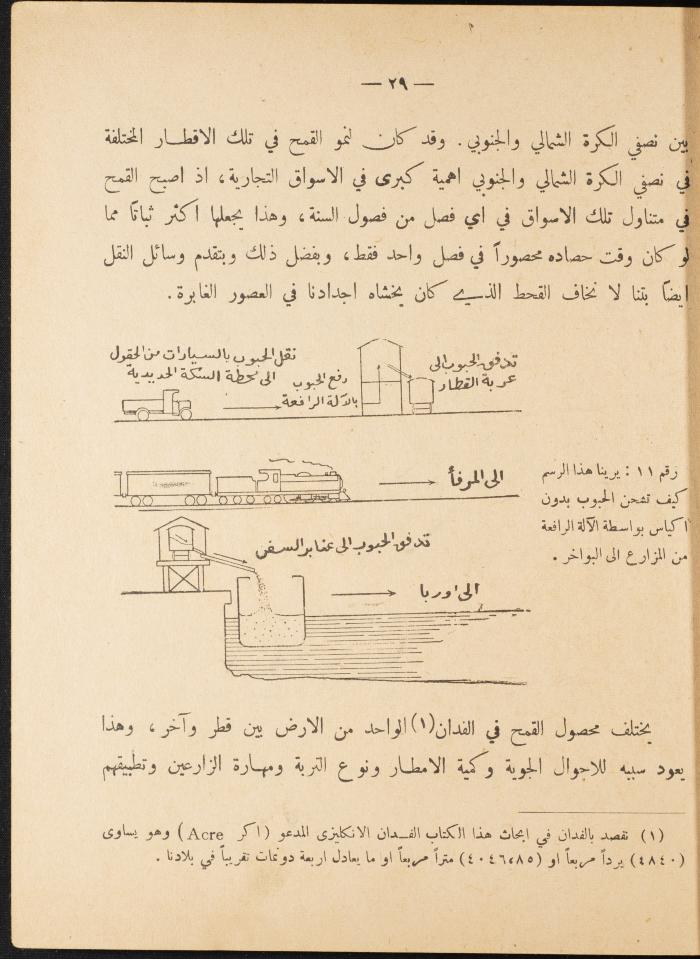 — ٢٩ —
بين نصفي الكرة الشمالي والجنوبي. وقد كان لنمو القمح في تلك الاقطـار المختلفة
في نصفي الكرة الشمالي والجنوبي اهمية كبرى في الاسواق التجارية، اذ اصبح القمح
في متناول تلك الاسواق في اي فصل من فصول السنة، وهذا يجعلها اكثر ثباتاً مما
لو كان وقت حصاده محصوراً في فصل واحد فقط، وبفضل ذلك وبتقدم وسائل النقل
ايضاً بتنا لا نخاف القحط الذي كان يخشاه اجدادنا في العصور الغابرة.
نقل الحبوب بالسيارات من الحقول
الى محطة السكة الحديدية
رفع الحبوب
بالآلة الرافعة
تدفق الحبوب الى
عربة القطار
الى المرفأ
تدفق الحبوب الى عنابر السفن
الى اوربا
رقم ١١ : يرينا هذا الرسم
كيف تشحن الحبوب بدون
اكياس بواسطة الآلة الرافعة
من المزارع الى البواخر.
يختلف محصول القمح في الفدان (١) الواحد من الارض بين قطر وآخر، وهذا
يعود سببه للاحوال الجوية وكمية الامطار ونوع التربة ومهارة الزارعين وتطبيقهم
(١) نقصد بالفدان في ابحاث هذا الكتاب الفـدان الانكليزى المدعو (اكر Acre) وهو يساوى
(٤٨٤٠) يرداً مربعاً او (٤٠٤٦،٨٥) متراً مربعاً او ما يعادل اربعة دونمات تقريباً في بلادنا.